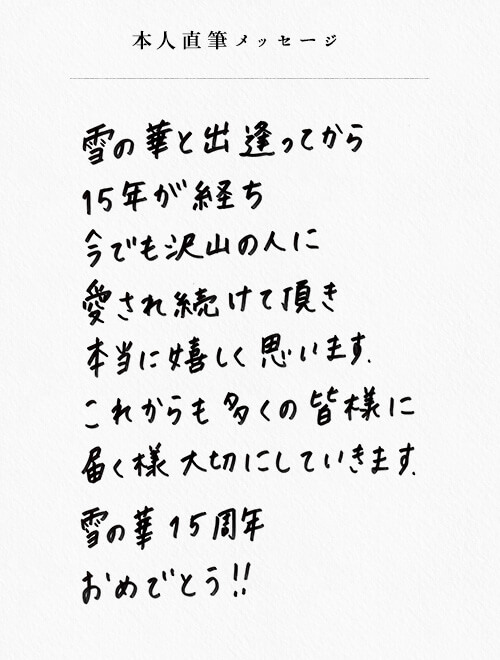 本人直筆メッセージ
雪の華と出逢ってから
15年が経ち
今でも沢山の人に
愛され続けて頂き
本当に嬉しく思います.
これからも多くの皆様に
届く様大切にしていきます.
雪の華15周年
おめでとう!!